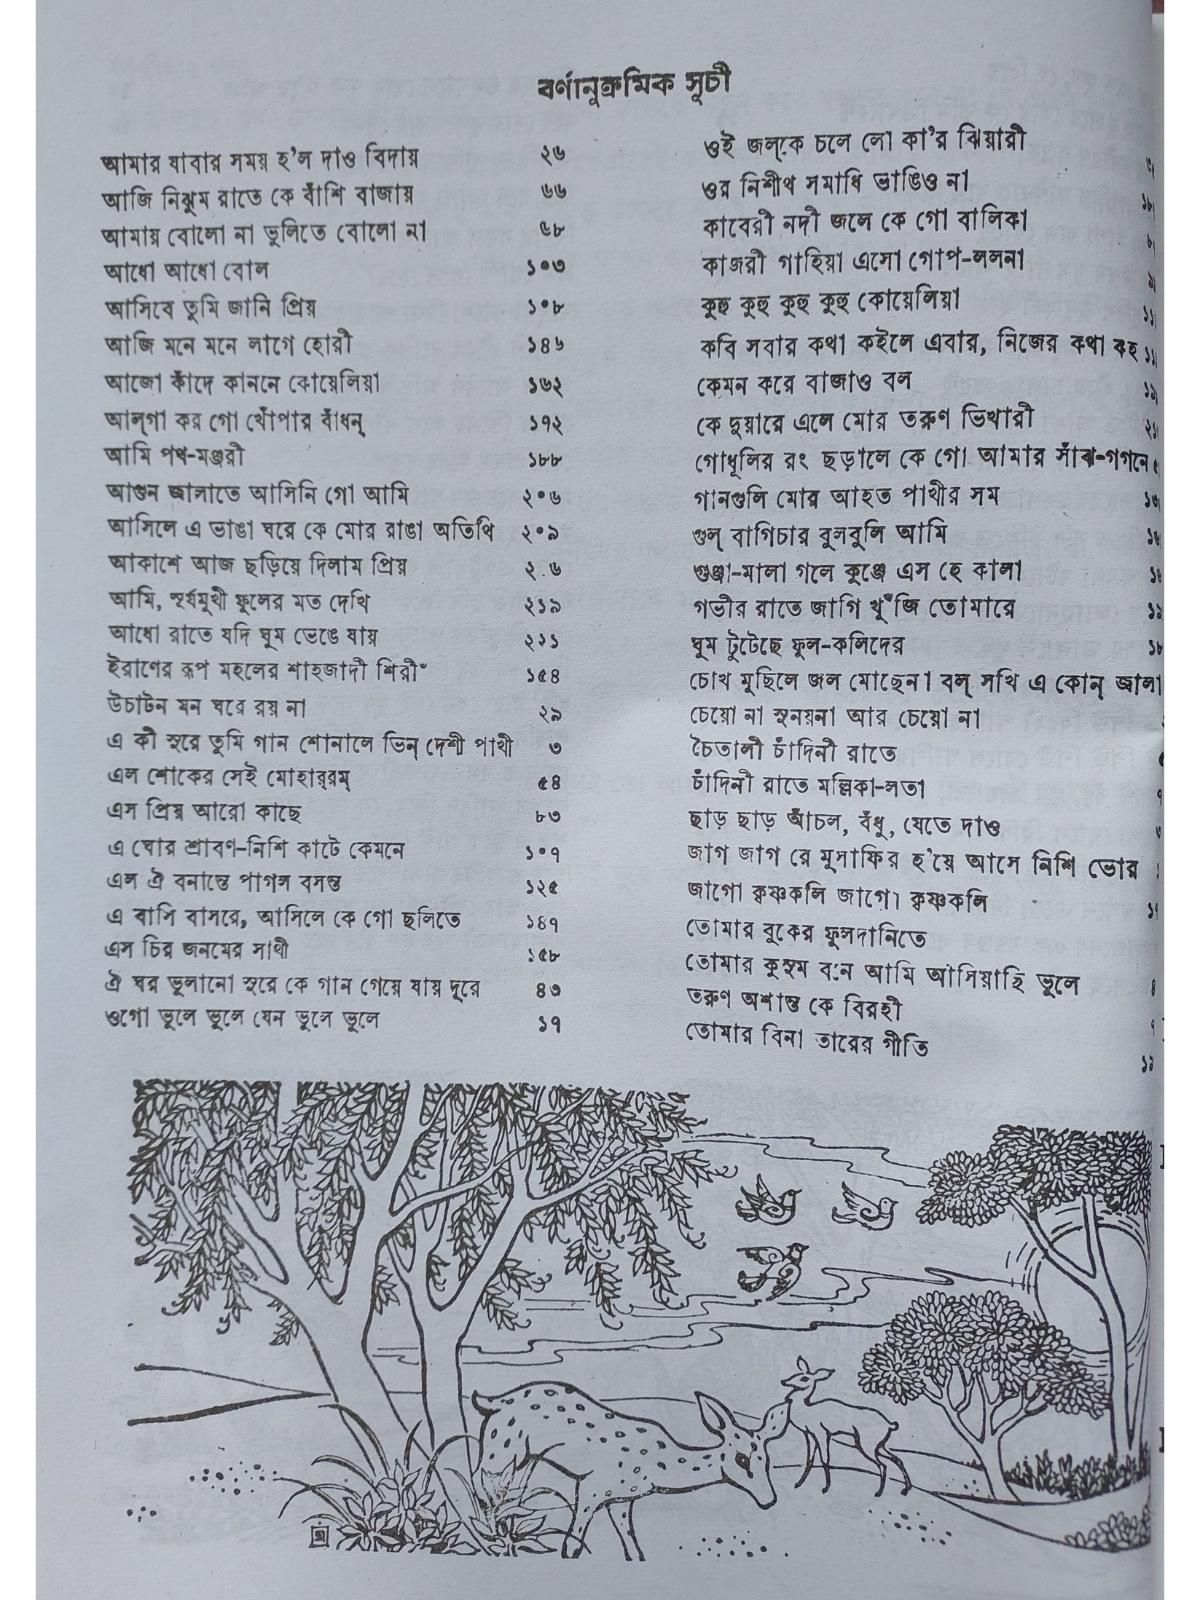 বর্ণানুক্রমিক সূচী
আমার যাবার সময় হ'ল দাও বিদায় ২৬
আজি নিঝুম রাতে কে বাঁশি বাজায় ৬৬
আমায় বোলো না ভুলিতে বোলো না ৬৮
আধো আধো বোল ১০৩
আসিবে তুমি জানি প্রিয় ১০৮
আজি মনে মনে লাগে হোরী ১৪৬
আজো কাঁদে কাননে কোয়েলিয়া ১৬২
আল্‌গা কর গো খোঁপার বাঁধন্‌ ১৭২
আমি পথ-মঞ্জরী ১৮৮
আগুন জ্বালাতে আসিনি গো আমি ২০৬
আসিলে এ ভাঙা ঘরে কে মোর রাঙা অতিথি ২০৯
আকাশে আজ ছড়িয়ে দিলাম প্রিয়
আমি, সূর্যমুখী ফুলের মত দেখি ২১৯
আধো রাতে যদি ঘুম ভেঙে যায় ২২১
ইরাণের রূপ মহলের শাহজাদী শিরী ১৫৪
উচাটন মন ঘরে রয় না ২৯
এ কী সুরে তুমি গান শোনালে ভিন্‌ দেশী পাখী ৩
এল শোকের সেই মোহার্‌রম্‌ ৫৪
এস প্রিয় আরো কাছে ৮৩
এ ঘোর শ্রাবণ-নিশি কাটে কেমনে ১০৭
এল ঐ বনান্তে পাগল বসন্ত ১২৫
এ বাসি বাসরে, আসিলে কে গো ছলিতে ১৪৭
এস চির জনমের সাথী ১৫৮
ঐ ঘর ভুলানো সুরে কে গান গেয়ে যায় দূরে ৪৩
ওগো ভুলে ভুলে যেন ভুলে ভুলে ১৭
ওই জল্‌কে চলে লো কা'র ঝিয়ারী
ওর নিশীথ সমাধি ভাঙিও না
কাবেরী নদী জলে কে গো বালিকা
কাজরী গাহিয়া এসো গোপ-ললনা
কুহু কুহু কুহু কুহু কোয়েলিয়া
কবি সবার কথা কইলে এবার, নিজের কথা কহ
কেমন করে বাজাও বল
কে দুয়ারে এলে মোর তরুণ ভিখারী
গোধূলির রং ছড়ালে কে গো আমার সাঁঝ-গগনে
গানগুলি মোর আহত পাখীর সম
গুল্‌ বাগিচার বুলবুলি আমি
গুঞ্জা-মালা গলে কুঞ্জে এস হে কালা
গভীর রাতে জাগি খুঁজি তোমারে
ঘুম টুটেছে ফুল-কলিদের
চোখ মুছিলে জল মোছেনা বল্‌ সখি এ কোন্‌ জ্বালা
চেয়ো না সুনয়না আর চেয়ো না
চৈতালী চাঁদিনী রাতে
চাঁদিনী রাতে মল্লিকা-লতা
ছাড় ছাড় আঁচল, বঁধু, যেতে দাও
জাগ জাগ রে মুসাফির হ'য়ে আসে নিশি ভোর
জাগো কৃষ্ণকলি জাগো কৃষ্ণকলি
তোমার বুকের ফুলদানিতে
তোমার কুসুম বনে আমি আসিয়াছি ভুলে
তরুণ অশান্ত কে বিরহী
তোমার বিনা তারের গীতি